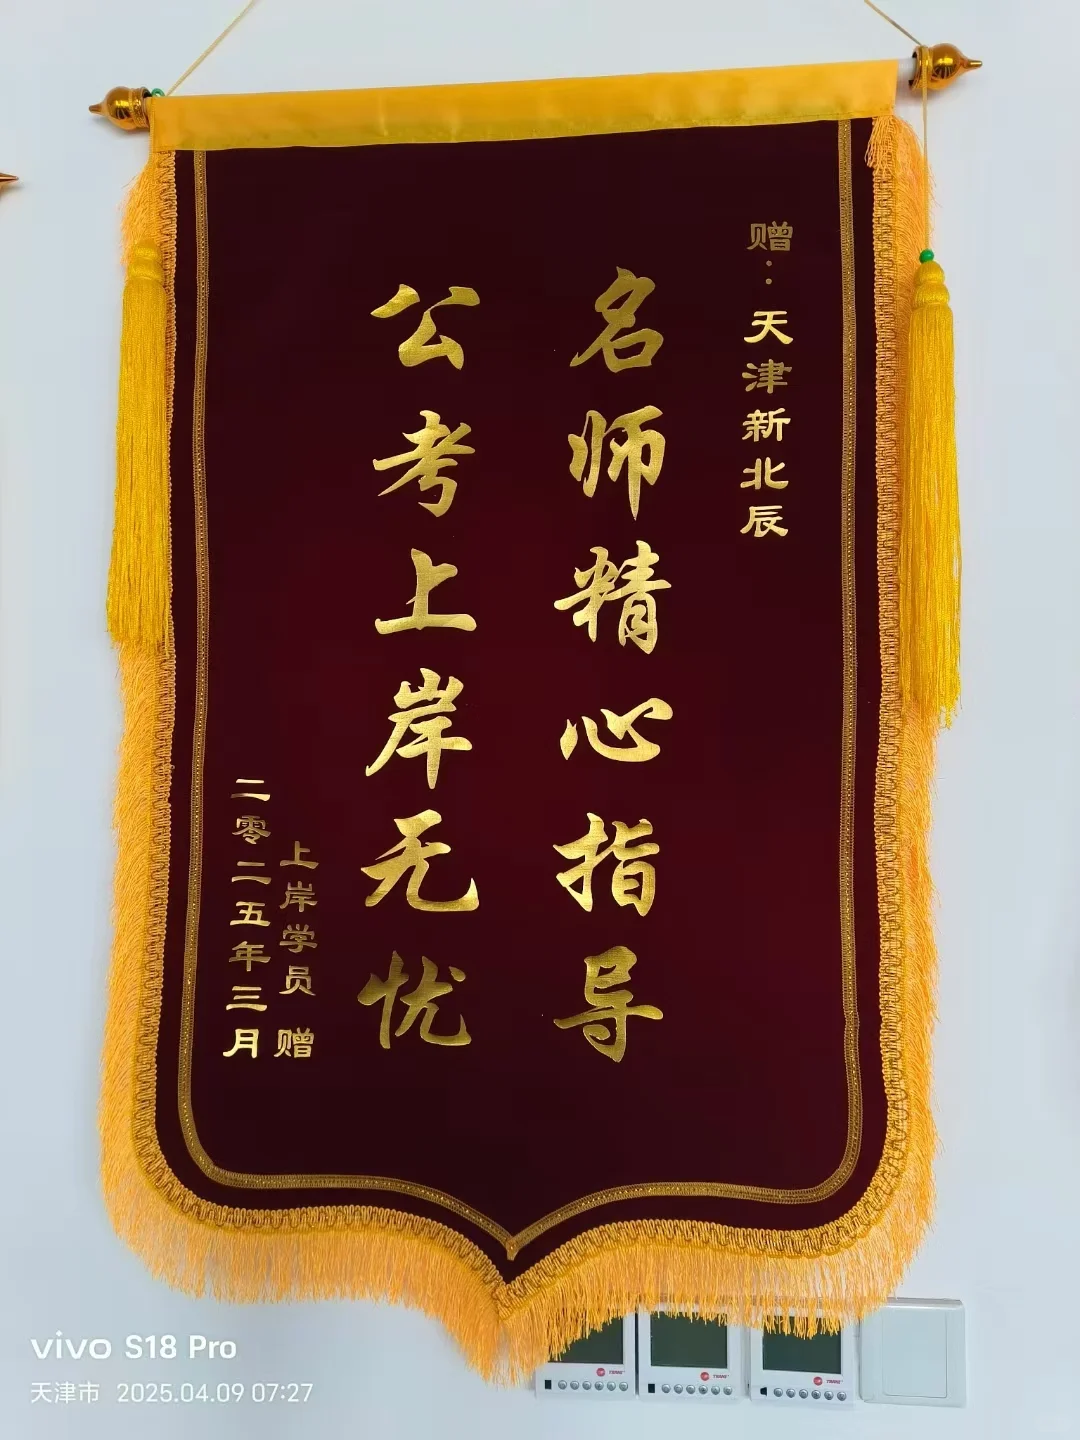 赠：天津新北辰
名师精心指导
公考上岸无忧
上岸学员 赠
二零二五年三月
vivo S18 Pro
天津市 2025.04.09 07:27